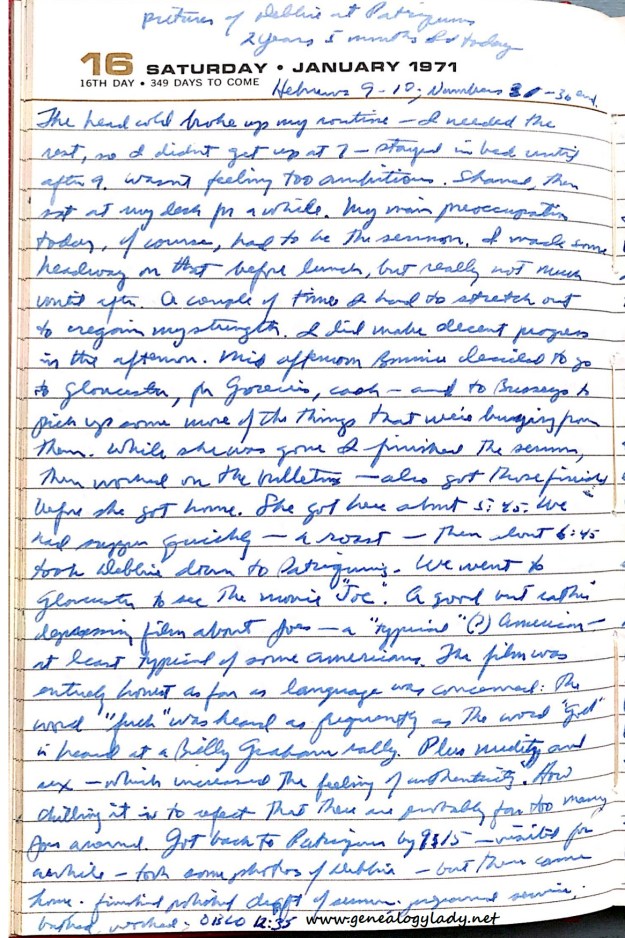 pictures of Debbie at Patriquins
2 years 5 months old today
16 SATURDAY • JANUARY 1971
16TH DAY • 349 DAYS TO COME Hebrews 9-10; Numbers 31-36 end.
The head cold broke up my routine – I needed the
rest, so I didn't get up at 7 – stayed in bed until
after 9. Wasn't feeling too ambitious. Shaved, then
sat at my desk for a while. My main preoccupation
today, of course, had to be the sermon. I made some
headway on that before lunch, but really not much
until after. A couple of times I had to stretch out
to regain my strength. I did make decent progress
in the afternoon. Mid afternoon Bonnie decided to go
to Gloucester, for groceries, cash – and to Busseys to
pick up some more of the things that we're buying from
them. While she was gone I finished the sermon,
then worked on the bulletins – also got those finished
before she got home. She got here about 5:45. We
had supper quickly – a roast – then about 6:45
took Debbie down to Patriquins. We went to
Gloucester to see the movie "Joe". A good but rather
depressing film about Joe – a "typical" (?) American –
at least typical of some Americans. The film was
entirely honest as far as language was concerned: The
word "fuck" was heard as frequently as the word "God"
is heard at a Billy Graham rally. Plus nudity and
sex – which increased the feeling of authenticity. How
chilling it is to reflect that there are probably far too many
Joes around. Got back to Patriquins by 9:15 – visited for
awhile – took some photos of Debbie – but then came
home. Finished polished draft of sermon. service;
bathed, worked; 12:35 www.genealogylady.net